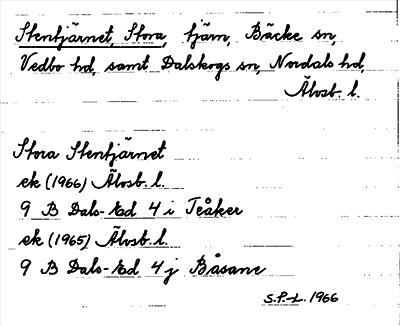 Stentjärnet, Stora, tjärn, Bäcke sn,
Vedbo hd, samt Dalskogs sn, Nordals hd,
Älvsb. l.
Stora Stentjärnet
ek (1966) Älvsb. l.
9 B Dals-Ed 4 i Teåker
ek (1965) Älvsb. l.
9 B Dals-Ed 4 j Båsane
S.P-L. 1966